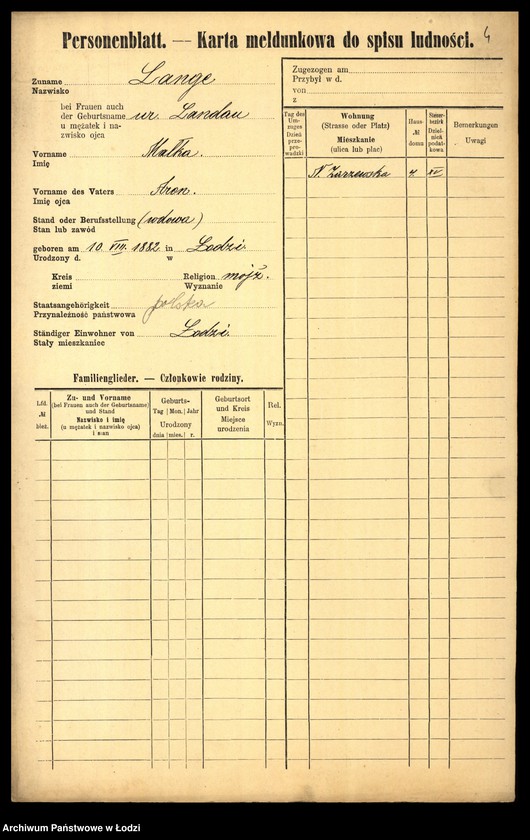 Personenblatt. — Karta meldunkowa do spisu ludności.
4
Zuname Lange
Nazwisko
bei Frauen auch
der Geburtsname ur. Landau
u mężatek i na-
zwisko ojca
Vorname Małka.
Imię
Vorname des Vaters Aron.
Imię ojca
Stand oder Berufsstellung (wdowa)
Stan lub zawód
geboren am 10. VIII. 1882 in Łodzi.
Urodzony d. w
Kreis Religion mojż.
ziemi Wyznanie
Staatsangehörigkeit polska
Przynależność państwowa
Ständiger Einwohner von Łodzi.
Stały mieszkaniec
Familienglieder. — Członkowie rodziny.
Lfd. № bież.
Zu- und Vorname
(bei Frauen auch der Geburtsname)
und Stand
Nazwisko i imię
(u mężatek i nazwisko ojca)
i stan
Geburts-
Tag Mon. Jahr
Urodzony
dnia mies. r.
Geburtsort
und Kreis
Miejsce
urodzenia
Rel.
Wyzn.
Zugezogen am
Przybył w d.
von
z
Tag des
Um-
zuges
Dzień
prze-
pro-
wadzki
Wohnung
(Strasse oder Platz)
Mieszkanie
(ulica lub plac)
Haus-
№
domu
Steuer-
bezirk
Dziel-
nica
podat-
kowa
Bemerkungen
Uwagi
N. Zarzewska 4. XV
Archiwum Państwowe w Łodzi